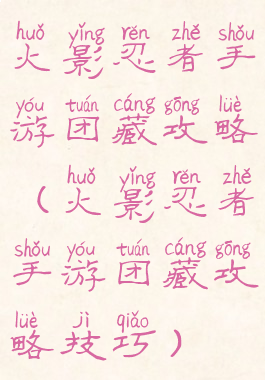 huǒ yǐng rěn zhě shǒu
火影忍者手
yóu tuán cáng gōng lüè
游团藏攻略
huǒ yǐng rěn zhě
（火影忍者
shǒu yóu tuán cáng gōng
手游团藏攻
lüè jì qiǎo
略技巧）